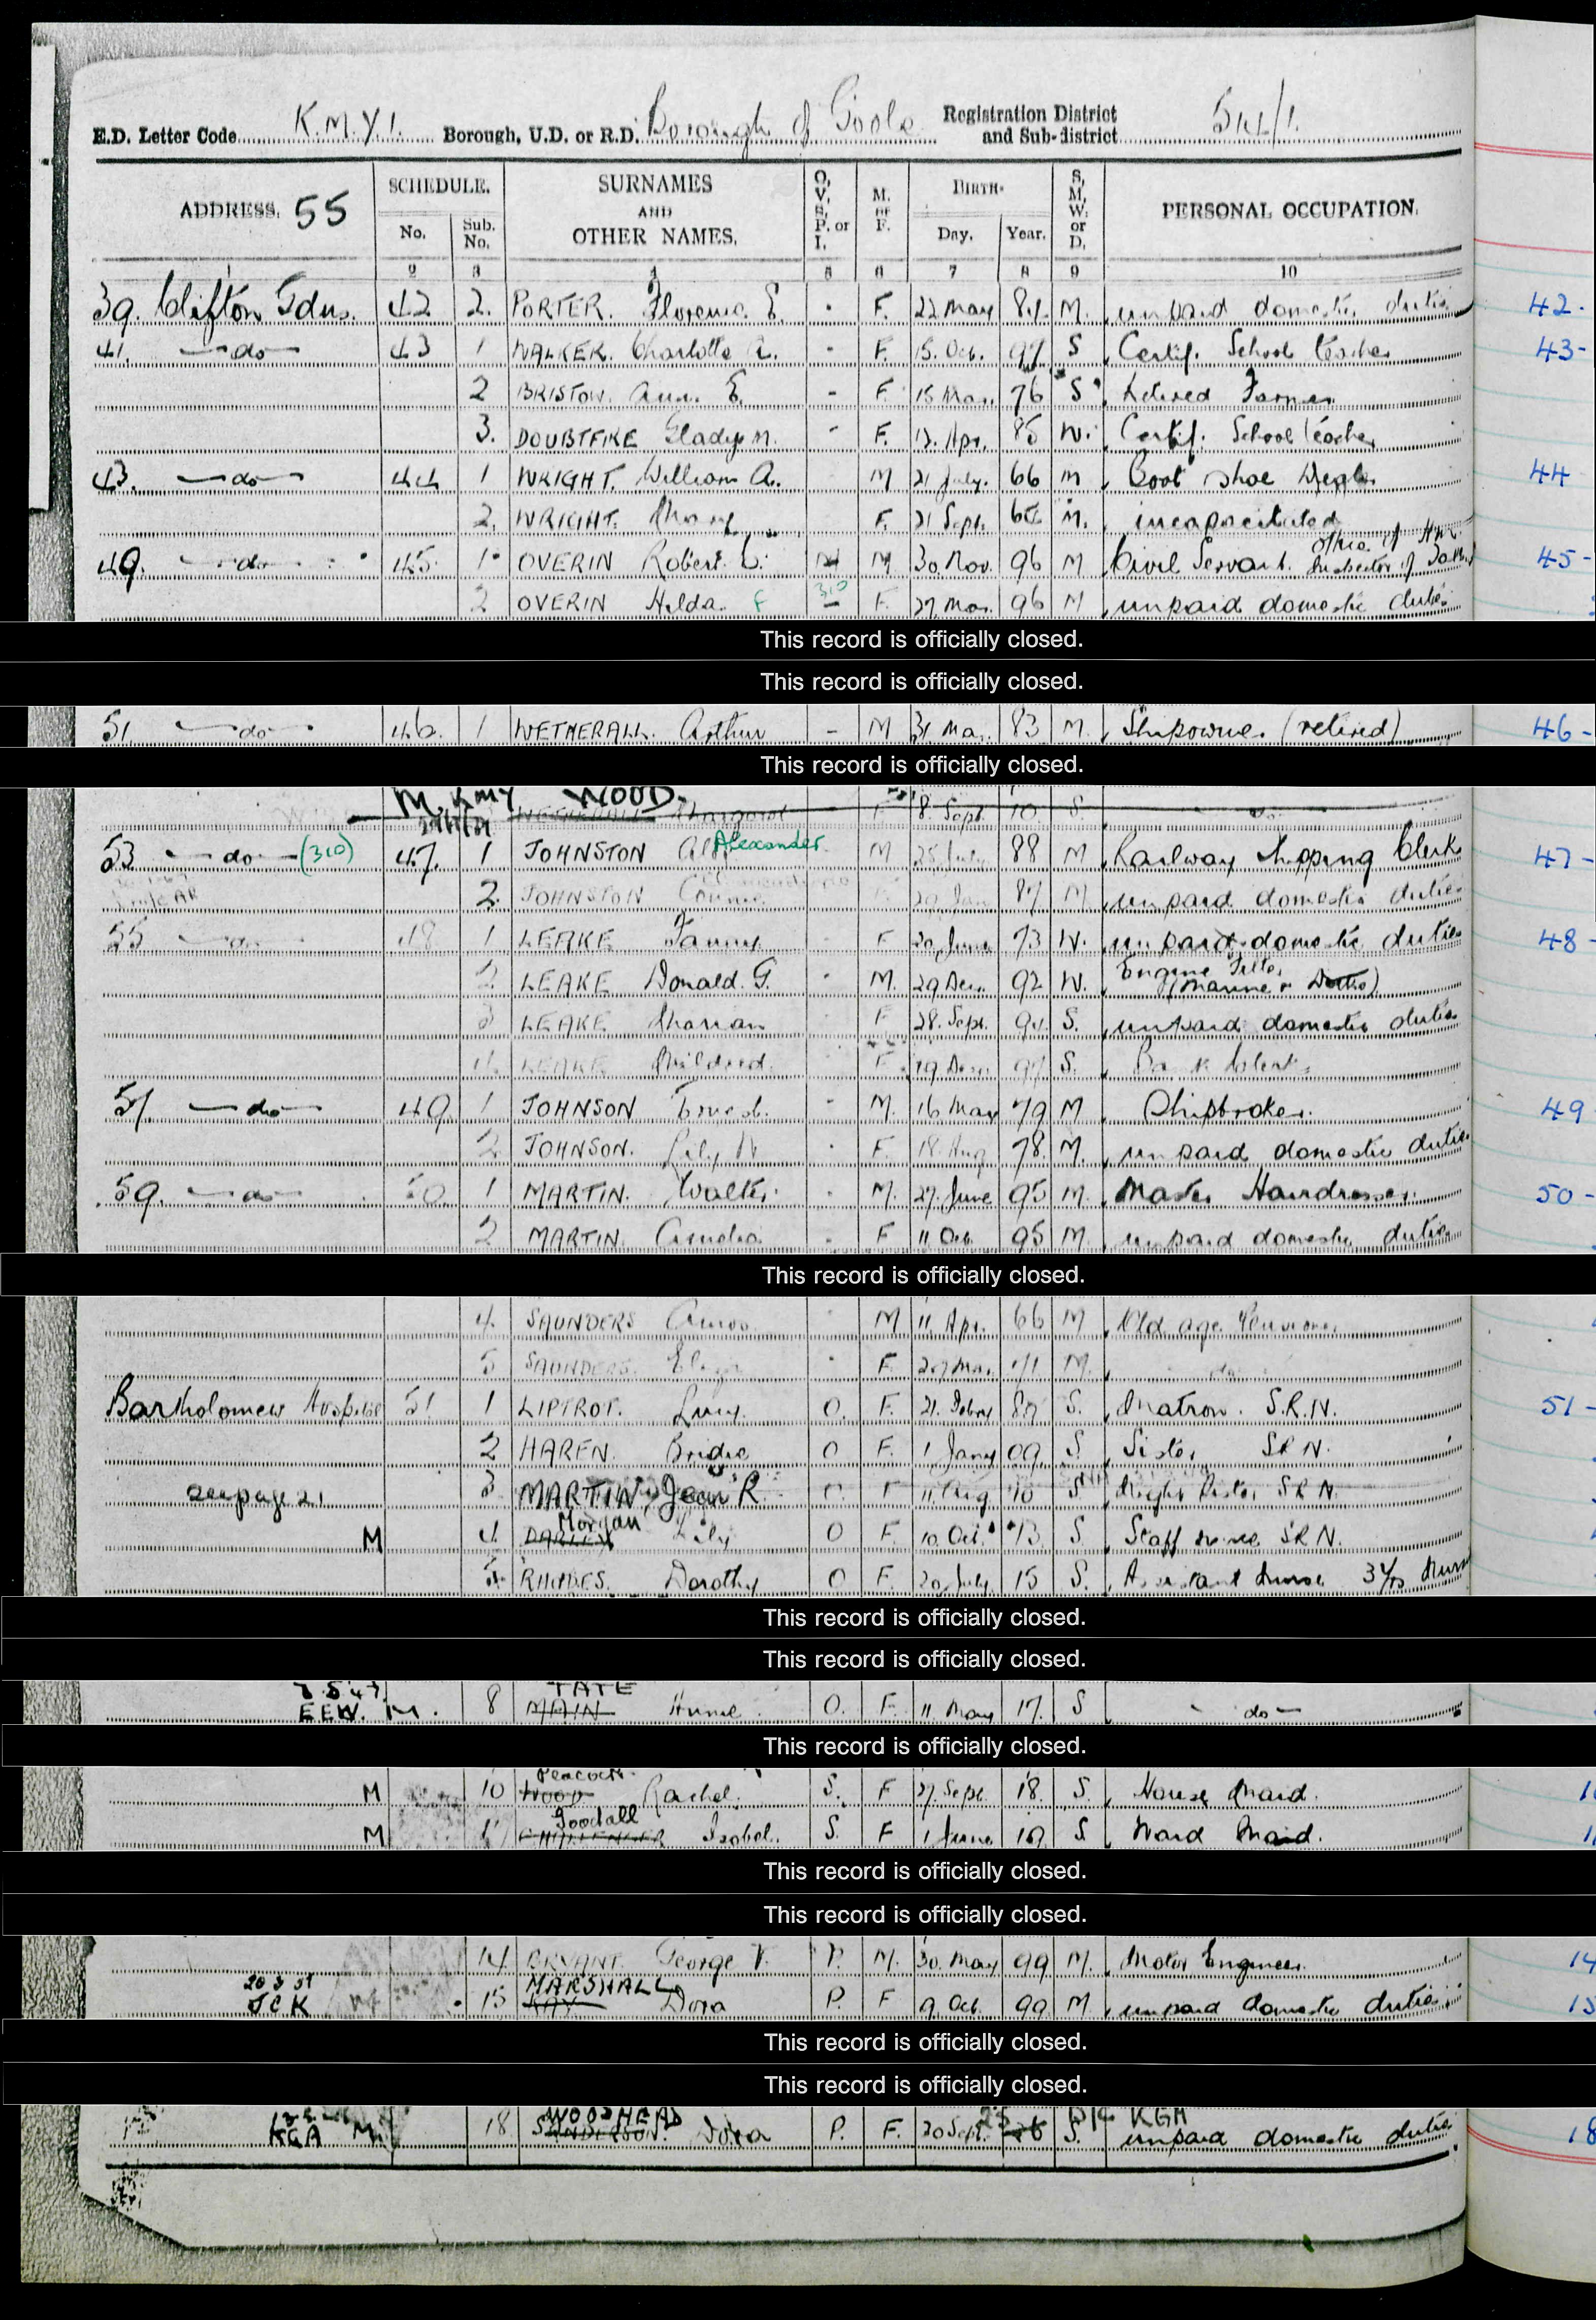 E.D. Letter Code K.M.Y.1. Borough, U.D. or R.D. Borough of Goole Registration District and Sub-district
ADDRESS. 55 SCHEDULE. No. Sub. No. SURNAMES AND OTHER NAMES. O, V, S, P. or I. M. or F. BIRTH- Day. Year. S, M, W. or D. PERSONAL OCCUPATION.
1 2 3 4 5 6 7 8 9 10
39. Clifton Gdns. 42 2. PORTER. Florence. E. - F. 22 May 84. M. unpaid domestic duties 42-
41. -do- 43 1 WALKER. Charlotte A. - F. 15. Oct. 97 S Certif. School teacher 43-
2 BRISTOW. Ann. E. - F. 15 Mar. 76 S. Retired Farmer
3. DOUBTFIRE Gladys M. - F. 13. Apr. 85 W. Certif. School teacher
43. -do- 44 1 WRIGHT. William A. M 21 July. 66 M Boot Shoe Dealer 44
2. WRIGHT. Mary F. 21 Sept. M. incapacitated
49. -do- 45. 1. OVERIN Robert. M 30 Nov. 96 M Civil Servant. office of H.M. Inspector of Taxes 45-
310
2 OVERIN Hilda. F - F. 27 Mar. 96 M unpaid domestic duties
This record is officially closed.
This record is officially closed.
51 -do- 46. 1 WETHERALL. Arthur - M 31 Mar. 83 M. Shipowner (retired) 46-
This record is officially closed.
M. KMY WOOD.
WETHERALL Margaret F 8. Sept. 10. S. do
53 -do- (310) 47. 1 JOHNSTON Alexander M 25 July 88 M Railway Shipping Clerk 47-
2. JOHNSTON Connie F 29 Jan 87 M unpaid domestic duties
55 -do- 48 1 LEAKE Fanny - F 20 June 73 W. unpaid domestic duties 48-
2 LEAKE Donald. G. - M. 29 Dec. 92 W. Engine Fitter (Marine)
3 LEAKE Marian F 28. Sept. 94. S. unpaid domestic duties
4 LEAKE Mildred. F. 19 Dec. 97 S. Bank Clerk
57 -do- 49 1 JOHNSON Ernest. - M. 16 May 79 M Shipbroker. 49
2 JOHNSON. Lily - F. 18. Aug 78. M. unpaid domestic duties
59. -do- 50. 1 MARTIN. Walter. - M. 27. June 95 M. Master Hairdresser. 50-
2 MARTIN. Amelia - F 11 Oct. 95 M. unpaid domestic duties
This record is officially closed.
4. SAUNDERS Amos - M 11. Apr. 66 M Old age Pensioner
5 SAUNDERS. Eliza - F. 27 Mar. 71 M. do
Bartholomew Hospital 51 1 LIPTROT. Lucy. O. F. 21. Febry S. Matron. S.R.N. 51-
2 HAREN. Bridie O F. 1 Jany 09. S. Sister S.R.N.
see page 21 3 MARTIN Jean R. O. F 11. Aug 10 S Night Sister S.R.N.
Morgan
M 4 DARLEY Lily O F. 10. Oct. 13 S. Staff nurse S.R.N.
5. RHODES. Dorothy O F. 20 July 15 S. Assistant Nurse
This record is officially closed.
This record is officially closed.
7.5.47. TATE
EEW. M. 8 MAIN Annie O. F. 11 May 17. S -do-
This record is officially closed.
Peacock
M 10 WOOD Rachel. S. F 27. Sept. 18. S. House Maid.
Goodall
M 11 Isobel. S. F 1 June 19 S Ward Maid.
This record is officially closed.
This record is officially closed.
14. BRYANT. George V. P. M. 30. May 99 M. Motor Engineer 14
20 3 51 MARSHALL
JCK M 15 KAY Dora P. F 9. Oct. 99 M unpaid domestic duties 15
This record is officially closed.
This record is officially closed.
WOODHEAD 25 KGA
KGA M. 18 SANDERSON. Dora P. F. 20 Sept. 26 S. unpaid domestic duties 18